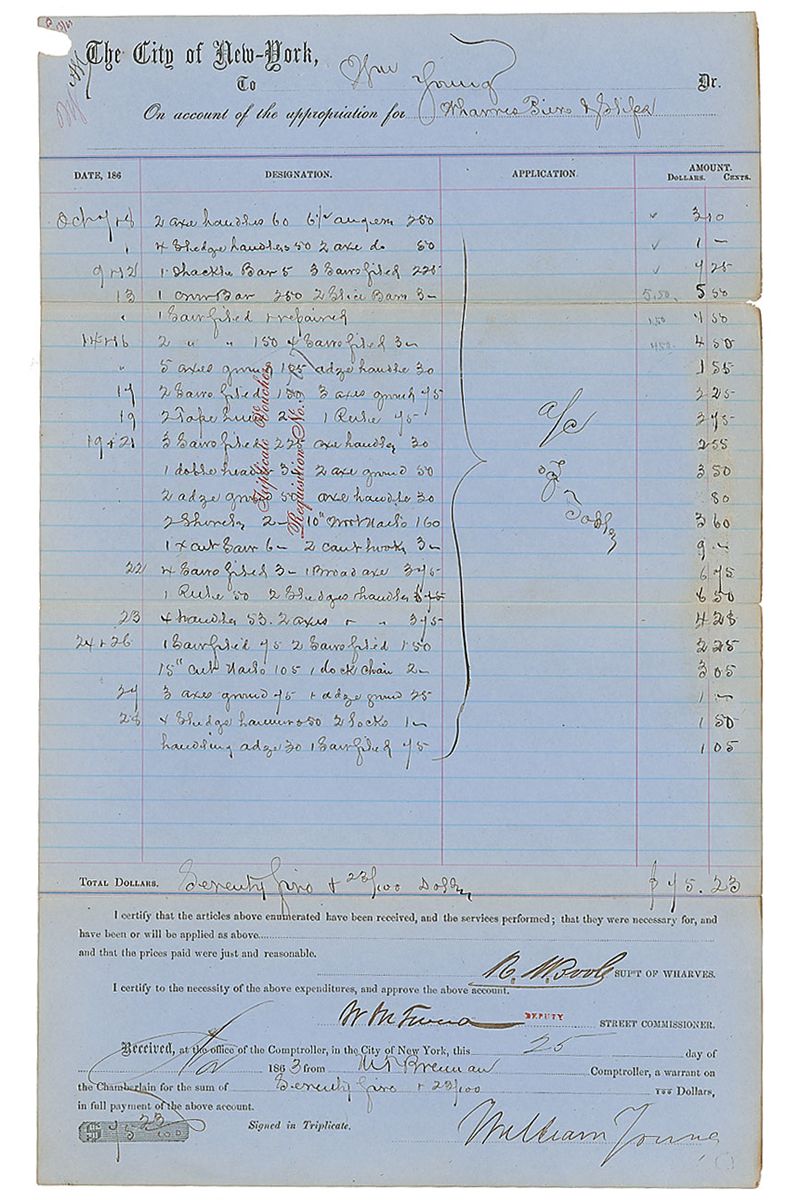 The City of New-York,
To Wm Young Dr.
On account of the appropriation for Wharves Piers & Slips
DATE, 186 DESIGNATION. APPLICATION. AMOUNT.
DOLLARS. CENTS.
Oct 7 & 8 2 axe handles 60 augers 250 3 10
4 Sledge handles 50 2 axe do 50 1 —
9 & 12 1 Shackle Bar 5 3 Saws filed 225 7 25
13 1 Crow Bar 250 2 Slice Bars 3— 5.50 5 50
" 1 Saw filed & repaired 150 1 50
14 & 16 2 " " 150 4 Saws filed 3— 450 4 50
" 5 axes ground 125 adze handle 30 1 55
17 2 Saws filed 150 3 axes ground 75 2 25
19 2 Tape Lines 2— 1 Rule 75 2 75
19 & 21 3 Saws filed 225 axe handle 30 2 55
1 3— 2 axe ground 50 3 50
2 adze ground 50 axe handle 30 80
2 Shovels 2— 10" Wrot Nails 160 3 60
1 x cut Saw 6— 2 cant hooks 3— 9 —
22 4 Saws filed 3— 1 Broad axe 375 6 75
1 Rule 50 2 Sledges & handles 6 50
23 4 handles 53. 2 axes " " 375 4 28
24 & 26 1 Saw filed 75 2 Saws filed 150 2 25
15" cut Nails 105 1 dock Chain 2— 3 05
27 3 axes ground 75 1 adze ground 25 1 —
28 4 Sledge hammers 50 2 locks 1— 1 50
handling adze 30 1 Saw filed 75 1 05
a/c
of
Triplicate Voucher
Requisition No.
TOTAL DOLLARS. Seventy five & 23/100 Dollars $75.23
I certify that the articles above enumerated have been received, and the services performed; that they were necessary for, and
have been or will be applied as above
and that the prices paid were just and reasonable.
SUP'T OF WHARVES.
I certify to the necessity of the above expenditures, and approve the above account.
DEPUTY STREET COMMISSIONER.
Received, at the office of the Comptroller, in the City of New York, this 25 day of
Nov 1863 from Brennan Comptroller, a warrant on
the Chamberlain for the sum of Seventy five & 23/100 Dollars,
in full payment of the above account.
$75.23 Signed in Triplicate. William Young